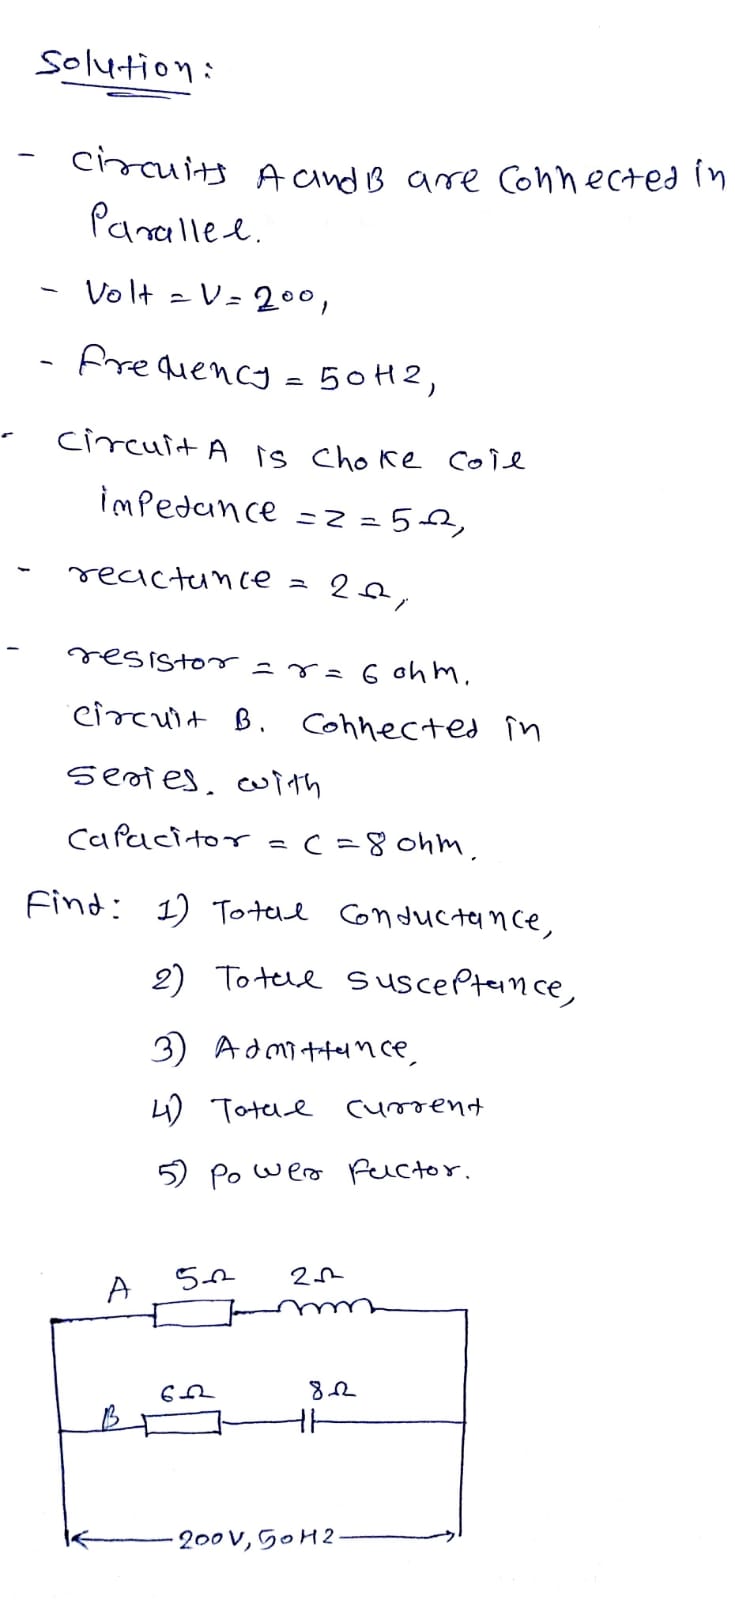 Solution:
- circuits A and B are connected in
Parallel.
- Volt = V = 200,
- frequency = 50Hz,
- circuit A is choke coil
impedance = z = 5Ω,
- reactance = 2Ω,
- resistor = r = 6 ohm.
circuit B. connected in
series. with
capacitor = c = 8 ohm.
Find: 1) Total conductance,
2) Total susceptance,
3) Admittance,
4) Total current
5) Power factor.
A 5Ω 2Ω
6Ω 8Ω
B
200V, 50Hz